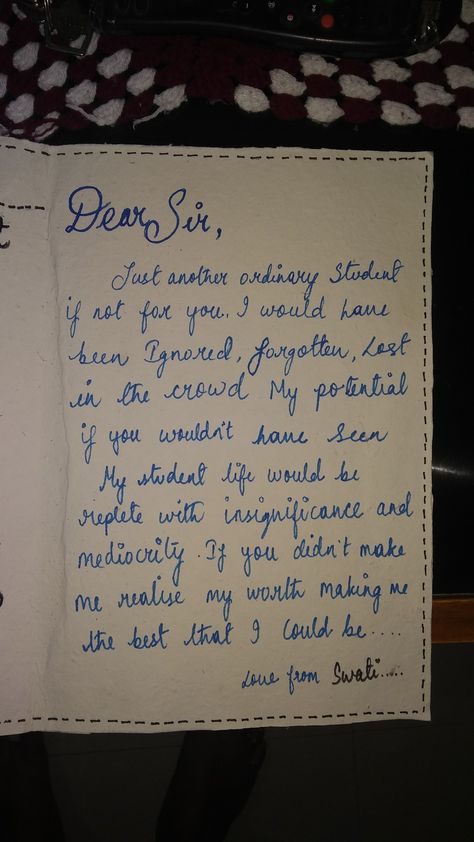 Dear Sir,
Just another ordinary Student
if not for you. I would have
been Ignored, forgotten, Lost
in the crowd My potential
if you wouldn't have seen
My student life would be
replete with insignificance and
mediocrity. If you didn't make
me realise my worth making me
the best that I could be....
Love from Swati.....